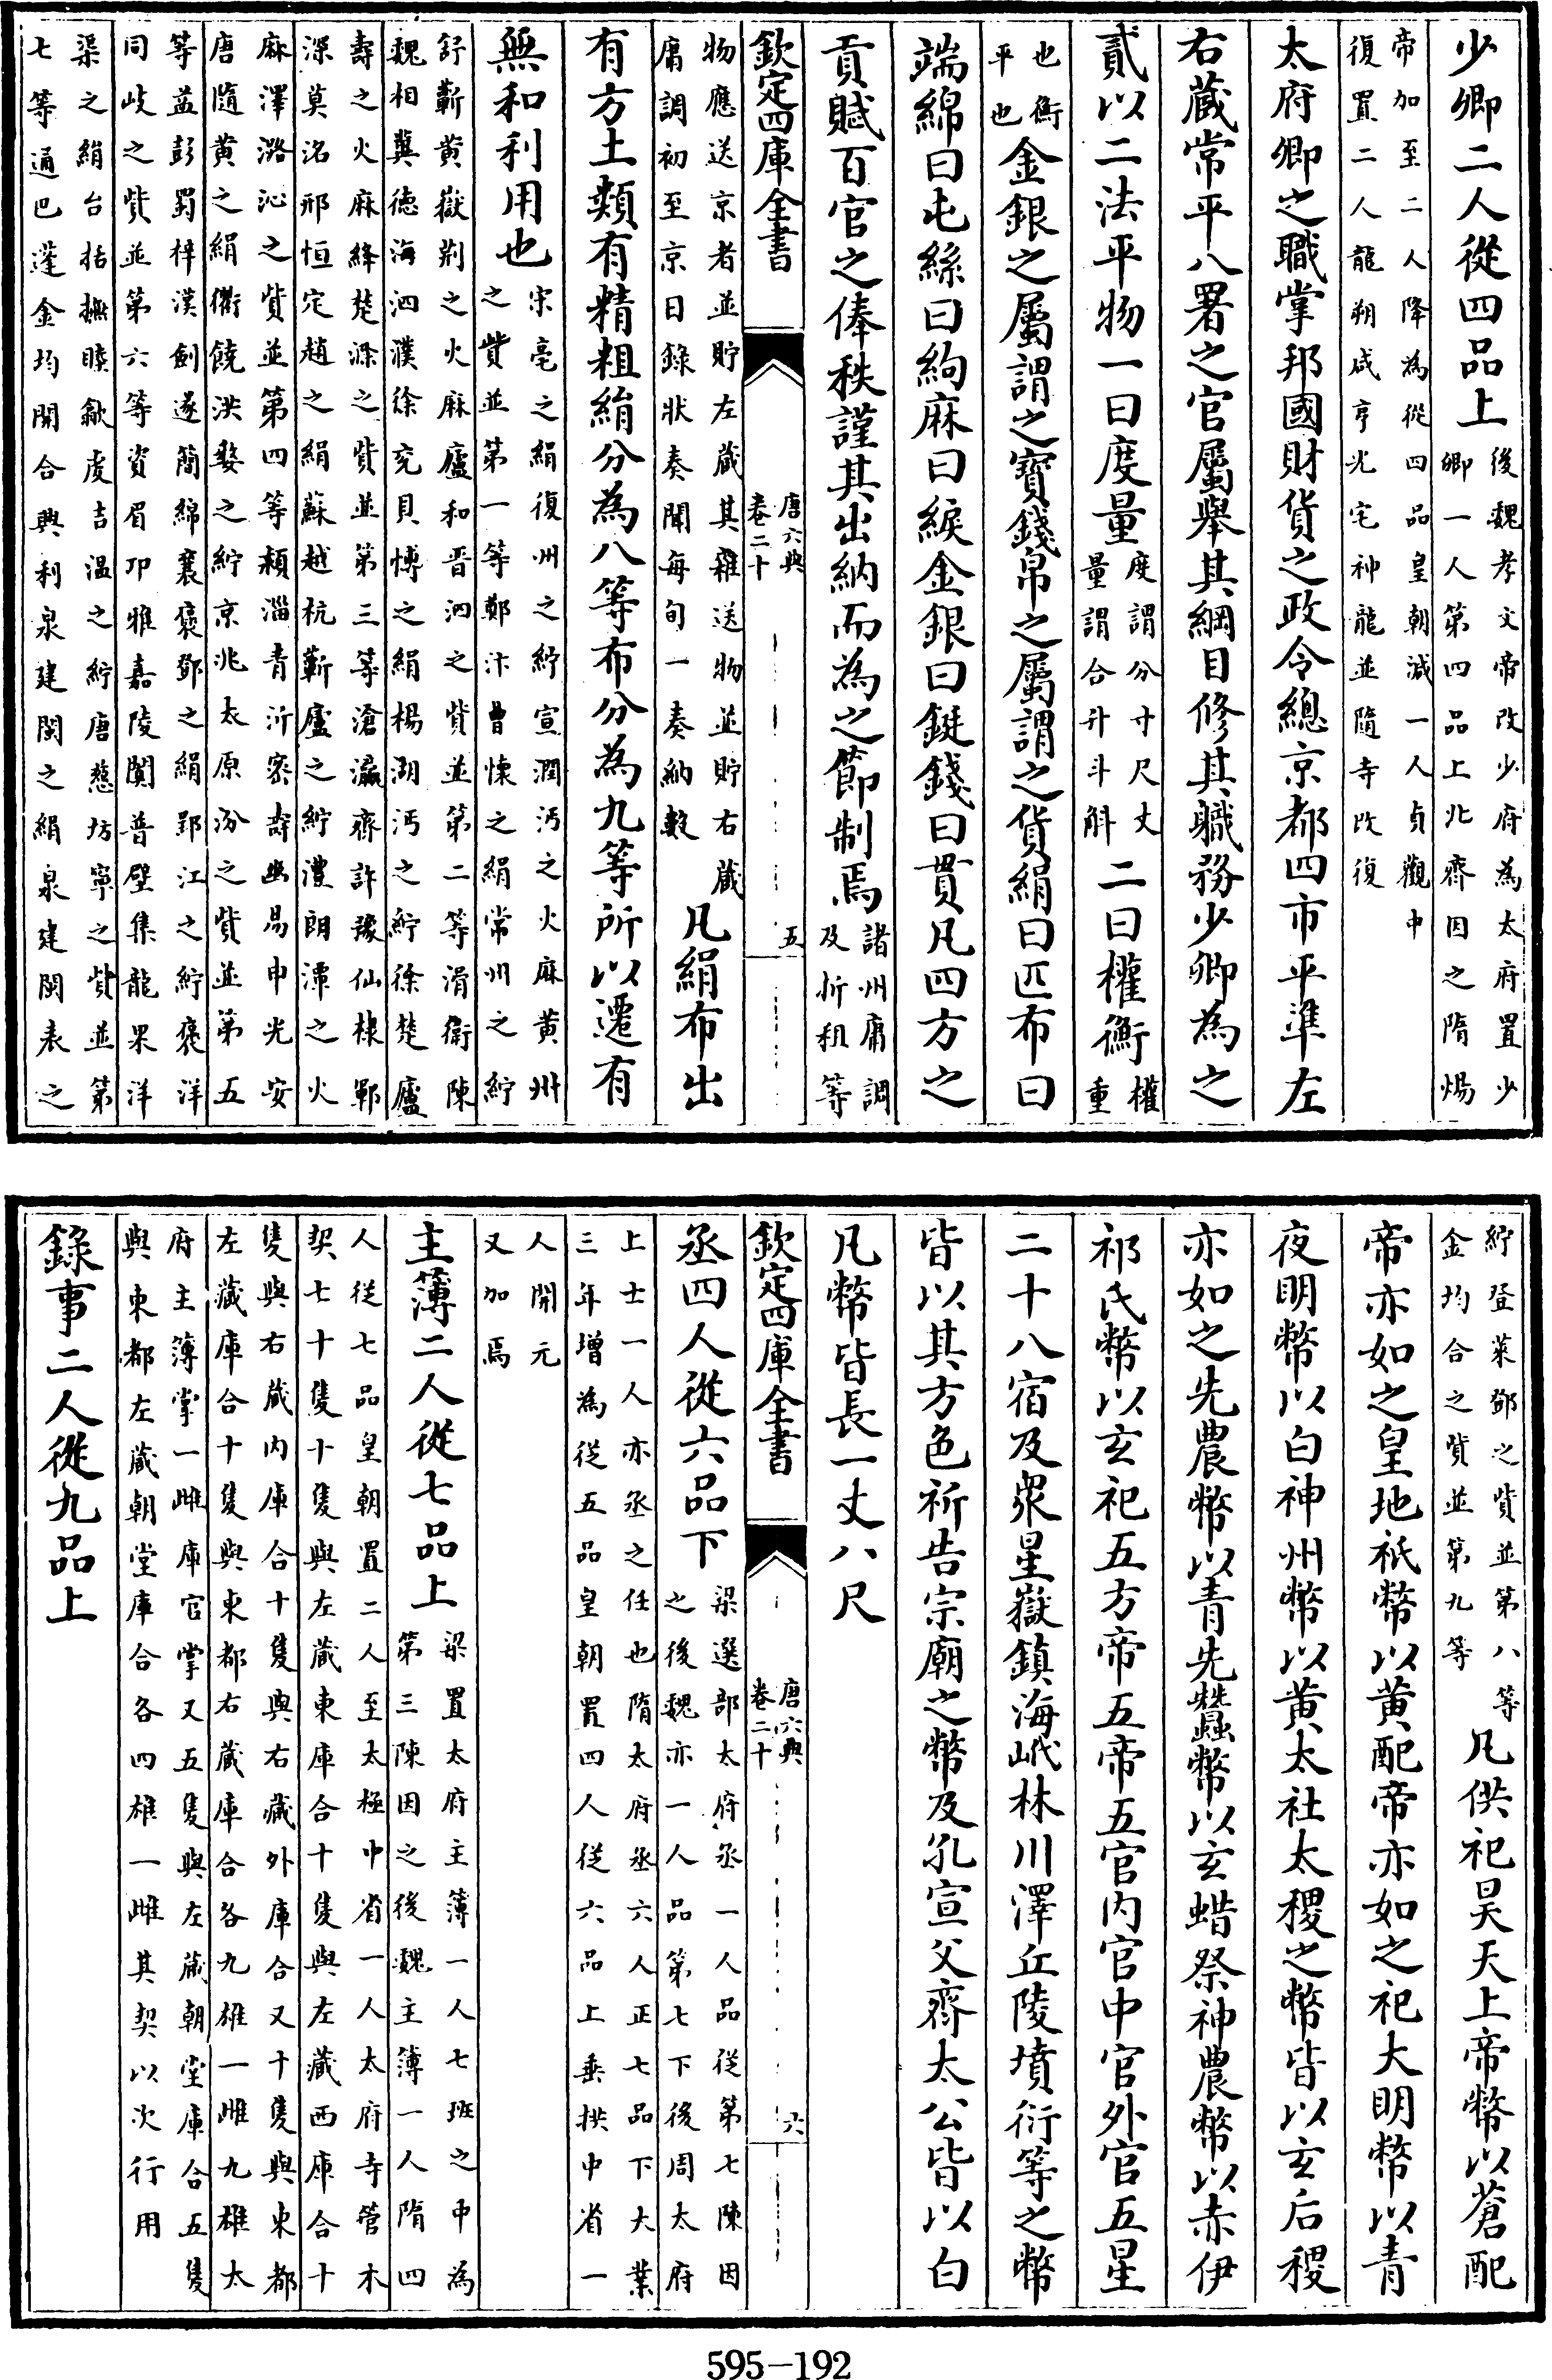 少卿二人從四品上後魏孝文帝改少府為太府置少
卿一人第四品上北齊因之隋煬
帝加至二人降為從四品皇朝減一人貞觀中
復置二人龍朔咸亨光宅神龍並隨寺改復
太府卿之職掌邦國財貨之政令總京都四市平準左
右藏常平八署之官屬舉其綱目修其職務少卿為之
貳以二法平物一曰度量度謂分寸尺丈
量謂合升斗斛二曰權衡權
重
也衡
平也金銀之屬謂之寶錢帛之屬謂之貨絹曰匹布曰
端綿曰屯絲曰絇麻曰綟金銀曰鋌錢曰貫凡四方之
貢賦百官之俸秩謹其出納而為之節制焉諸州庸調
及折租等
欽定四庫全書 唐六典
卷二十 五
物應送京者並貯左藏其雜送物並貯右藏
庸調初至京日錄狀奏聞每旬一奏納數凡絹布出
有方土類有精粗絹分為八等布分為九等所以遷有
無和利用也宋亳之絹復州之紵宣潤沔之火麻黄州
之貲並第一等鄭汴曹懷之絹常州之紵
舒蘄黄嶽荆之火麻廬和晋泗之貲並第二等滑衛陳
魏相冀德海泗濮徐兖貝博之絹楊湖沔之紵徐楚廬
壽之火麻絳楚滁之貲並第三等滄瀛齊許豫仙棣鄆
深莫洺邢恒定趙之絹蘇越杭蘄廬之紵澧朗潭之火
麻澤潞沁之貲並第四等潁淄青沂密壽幽易申光安
唐隨黄之絹衢饒洪婺之紵京兆太原汾之貲並第五
等益彭蜀梓漢劍遂簡綿襄褒鄧之絹郢江之紵褒洋
同岐之貲並第六等資眉卭雅嘉陵閬普壁集龍果洋
渠之絹台括撫睦歙虔吉温之紵唐慈坊寧之貲並第
七等通巴蓬金均開合興利泉建閩之絹泉建閩袁之
紵登萊鄧之貲並第八等
金均合之貲並第九等凡供祀昊天上帝幣以蒼配
帝亦如之皇地祇幣以黄配帝亦如之祀大明幣以青
夜明幣以白神州幣以黄太社太稷之幣皆以玄后稷
亦如之先農幣以青先蠶幣以玄蜡祭神農幣以赤伊
祁氏幣以玄祀五方帝五帝五官内官中官外官五星
二十八宿及衆星嶽鎮海岱林川澤丘陵墳衍等之幣
皆以其方色祈告宗廟之幣及孔宣父齊太公皆以白
凡幣皆長一丈八尺
欽定四庫全書 唐六典
卷二十 六
丞四人從六品下梁選部太府丞一人品從第七陳因
之後魏亦一人品第七下後周太府
上士一人亦丞之任也隋太府丞六人正七品下大業
三年增為從五品皇朝置四人從六品上垂拱中省一
人開元
又加焉
主薄二人從七品上梁置太府主薄一人七班之中為
第三陳因之後魏主薄一人隋四
人從七品皇朝置二人至太極中省一人太府寺管木
契七十隻十隻與左藏東庫合十隻與左藏西庫合十
隻與右藏内庫合十隻與右藏外庫合又十隻與東都
左藏庫合十隻與東都右藏庫合各九雄一雌九雄太
府主薄掌一雌庫官掌又五隻與左藏朝堂庫合五隻
與東都左藏朝堂庫合各四雄一雌其契以次行用
錄事二人從九品上
595-192